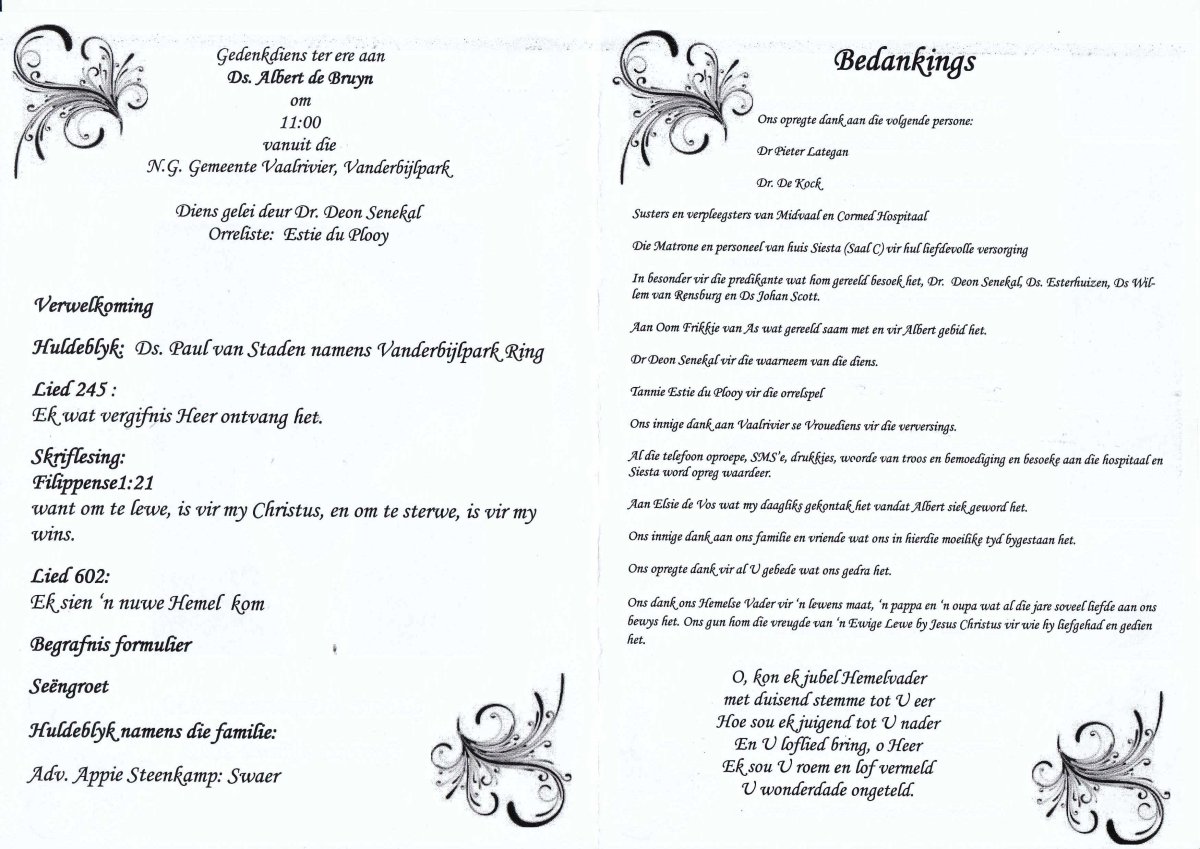 Gedenkdiens ter ere aan
Ds. Albert de Bruyn
om
11:00
vanuit die
N.G. Gemeente Vaalrivier, Vanderbijlpark
Diens gelei deur Dr. Deon Senekal
Orreliste: Estie du Plooy
Verwelkoming
Huldeblyk: Ds. Paul van Staden namens Vanderbijlpark Ring
Lied 245 :
Ek wat vergifnis Heer ontvang het.
Skriflesing:
Filippense1:21
want om te lewe, is vir my Christus, en om te sterwe, is vir my
wins.
Lied 602:
Ek sien ‘n nuwe Hemel kom
Begrafnis formulier
Seëngroet
Huldeblyk namens die familie:
Adv. Appie Steenkamp: Swaer
Bedankings
Ons opregte dank aan die volgende persone:
Dr Pieter Lategan
Dr. De Kock
Susters en verpleegsters van Midvaal en Cormed Hospitaal
Die Matrone en personeel van huis Siesta (Saal C) vir hul liefdevolle versorging
In besonder vir die predikante wat hom gereeld besoek het, Dr. Deon Senekal, Ds. Esterhuizen, Ds Wil-
lem van Rensburg en Ds Johan Scott.
Aan Oom Frikkie van As wat gereeld saam met en vir Albert gebid het.
Dr Deon Senekal vir die waarneem van die diens.
Tannie Estie du Plooy vir die orrelspel
Ons innige dank aan Vaalrivier se Vrouediens vir die verversings.
Al die telefoon oproepe, SMS’e, drukkies, woorde van troos en bemoediging en besoeke aan die hospitaal en
Siesta word opreg waardeer.
Aan Elsie de Vos wat my daagliks gekontak het vandat Albert siek geword het.
Ons innige dank aan ons familie en vriende wat ons in hierdie moeilike tyd bygestaan het.
Ons opregte dank vir al U gebede wat ons gedra het.
Ons dank ons Hemelse Vader vir ‘n lewens maat, ‘n pappa en ‘n oupa wat al die jare soveel liefde aan ons
bewys het. Ons gun hom die vreugde van ‘n Ewige Lewe by Jesus Christus vir wie hy liefgehad en gedien
het.
O, kon ek jubel Hemelvader
met duisend stemme tot U eer
Hoe sou ek juigend tot U nader
En U loflied bring, o Heer
Ek sou U roem en lof vermeld
U wonderdade ongeteld.